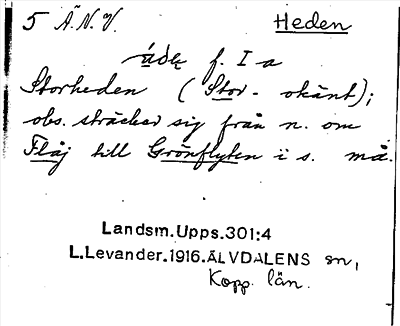 5 Ä.N.V. Heden
f. I a
Storheden (Stor- okänt);
obs. sträcker sig från n. om
Flåj till Grönflyten i s. må.
Landsm.Upps.301:4
L.Levander.1916.ÄLVDALENS sn,
Kopp. län.